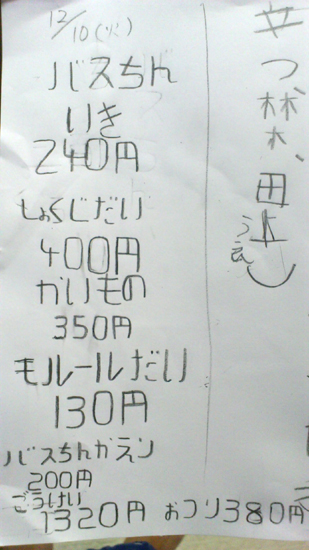 12/10(火)
バスちん
いき
240円
しょくじだい
400円
かいもの
350円
モルールだい
130円
バスちんかえり
200円
ごうけい
1320円 おつり380円